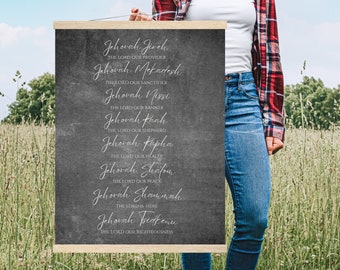 Jehovah Jireh
THE LORD OUR PROVIDER
Jehovah Mekadesh
THE LORD OUR SANCTIFIER
Jehovah Nissi
THE LORD OUR BANNER
Jehovah Raah
THE LORD OUR SHEPHERD
Jehovah Rapha
THE LORD OUR HEALER
Jehovah Shalom
THE LORD OUR PEACE
Jehovah Shammah
THE LORD IS HERE
Jehovah Tsidkenu
THE LORD OUR RIGHTEOUSNESS